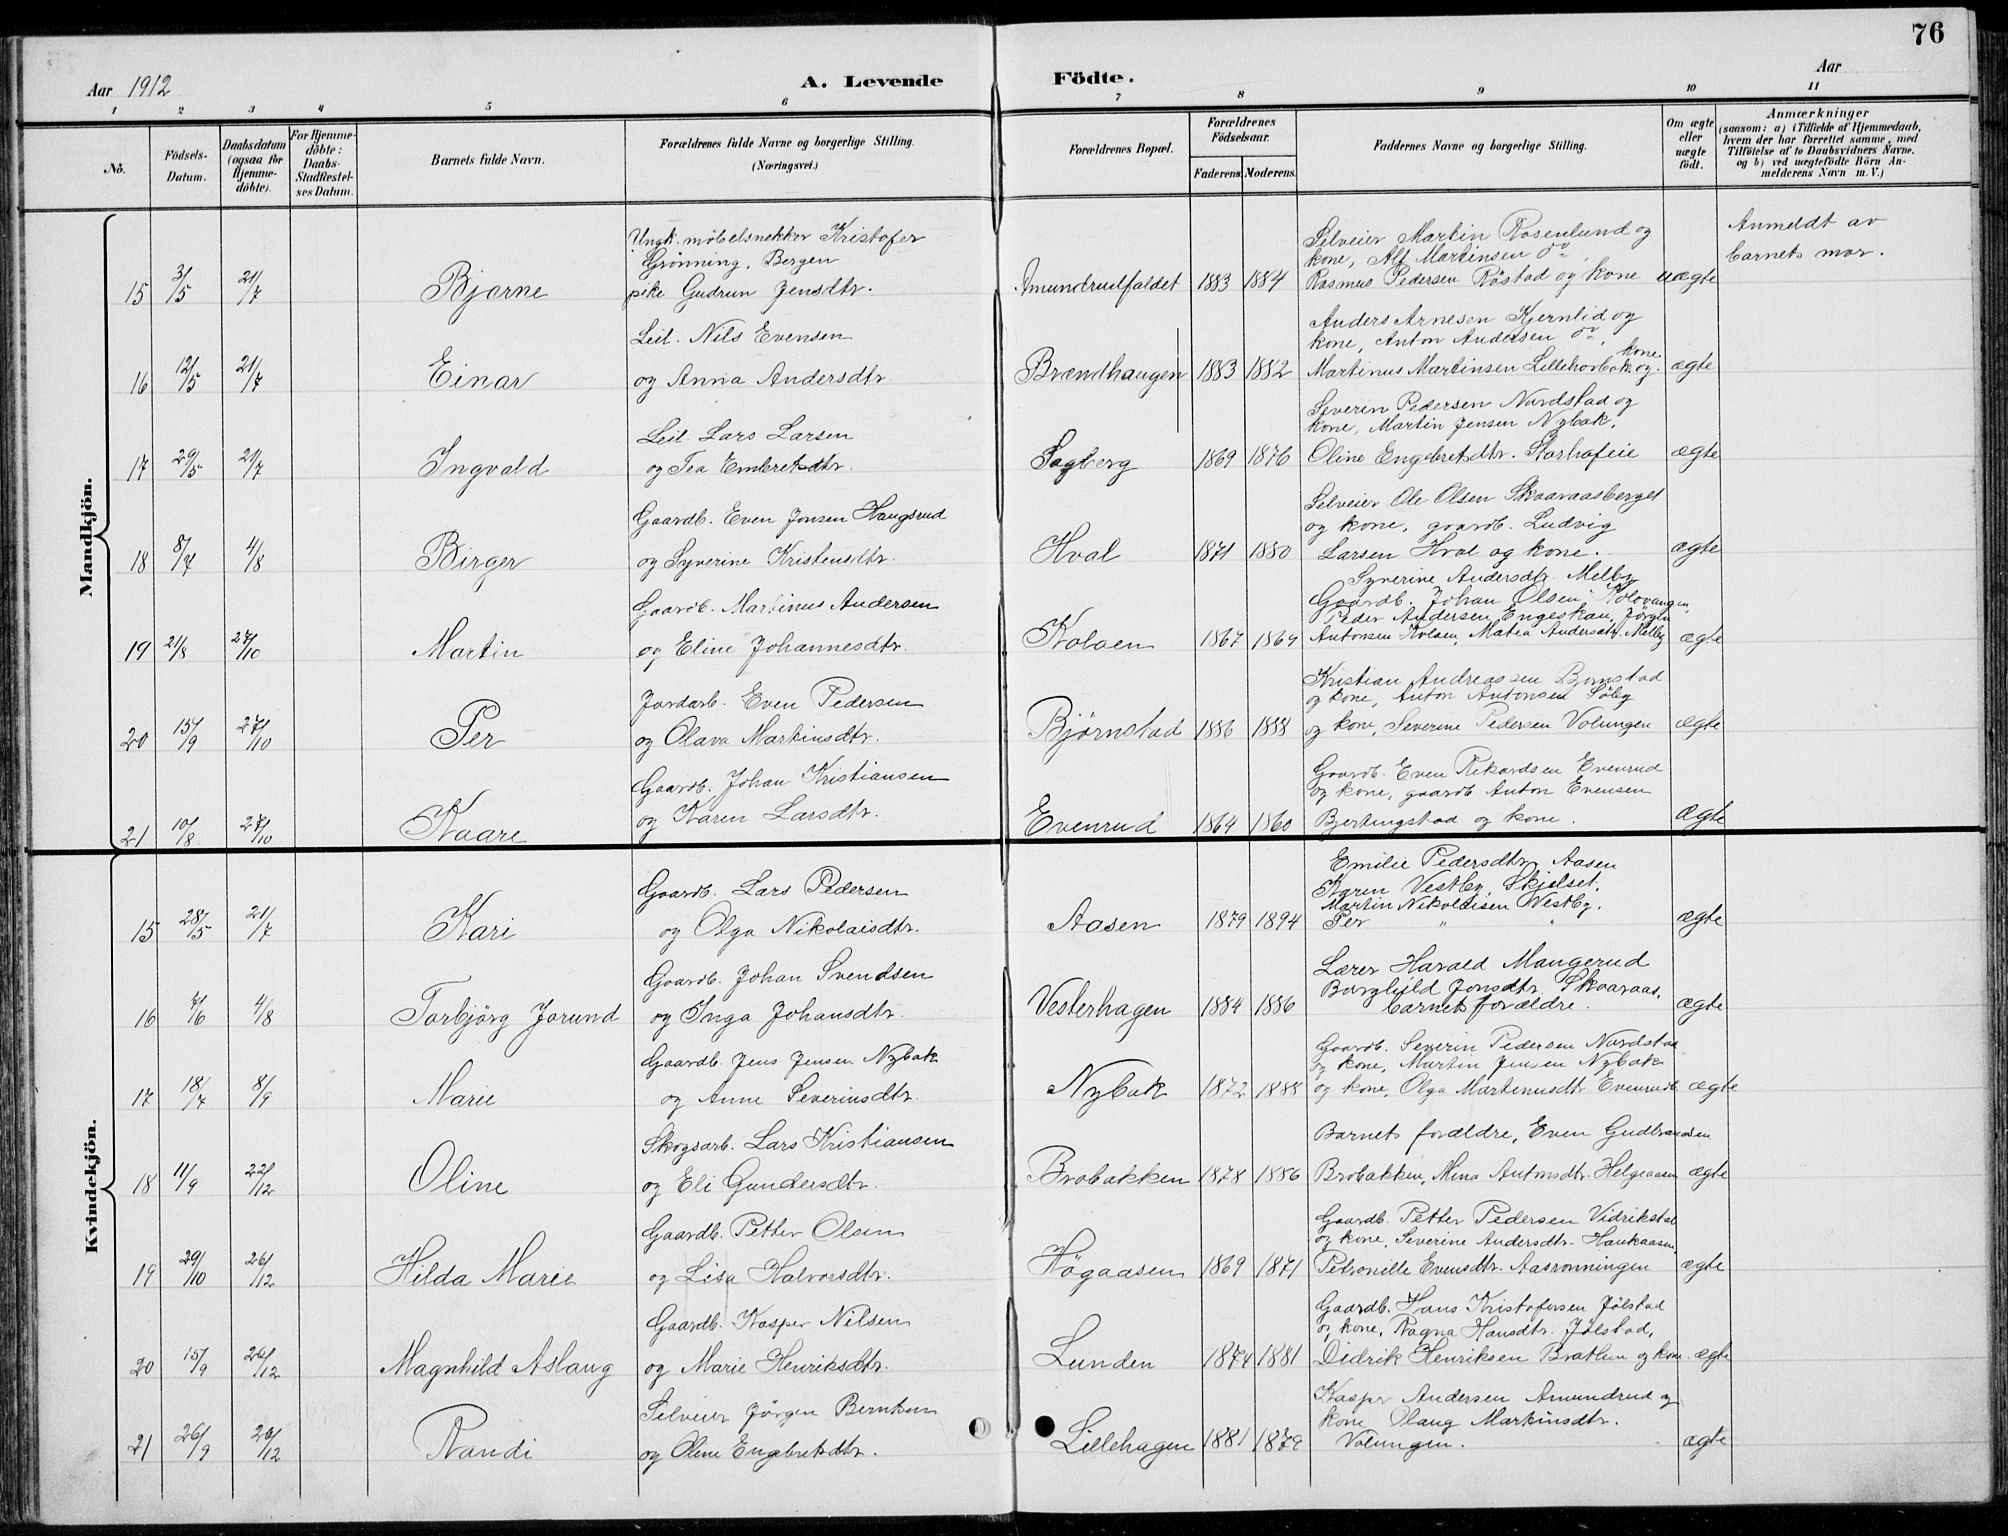 76
Aar 1912
A. Levende Födte.
Aar
1 2 3 4 5 6 7 8 9 10 11
No.
Födsels-Datum.
Daabsdatum (ogsaa for Hjemme-döbte).
For Hjemme-döbte: Daabs-Stadfæstel-ses Datum.
Barnets fulde Navn.
Forældrenes fulde Navne og borgerlige Stilling. (Næringsvei.)
Forældrenes Bopæl.
Forældrenes Födselsaar.
Faderens. Moderens.
Faddernes Navne og borgerlige Stilling.
Om ægte eller uægte födt.
Anmærkninger
(saasom: a) i Tilfælde af Hjemmedaab, hvem der har forrettet samme, med Tilföielse af to Daabsvidners Navne, og b) ved uegtefödte Börn An-melderens Navn m. V.)
Mandkjön.
Ungk. møbelsnekker Kristofer
Grönning, Bergen
15 3/5 21/7 Bjarne pike Gudrun Jensdtr. Amundrudfaldet 1883 1884
Selveier Martin Rosenlund og
kone, Alf Martinsen do,
Rasmus Pedersen Röstad og kone uægte
Anmeldt av
barnets mor.
Leil. Nils Evensen
16 12/5 21/7 Einar og Anna Andersdtr. Brændhaugen 1883 1882
Anders Arnesen Kjernlid og
kone, Anton Andersen do,
Martinus Martinsen Lillehovbak og kone ægte
Leil. Lars Larsen
17 29/5 21/7 Ingvald og Tea Embretsdtr. Sagberg 1869 1876
Severin Pedersen Nordstad og
kone, Martin Jensen Nybak,
Oline Engebretsdtr. Storhofeie ægte
Gaardb. Even Jonsen Haugsrud
18 8/7 4/8 Birger og Syverine Kristensdtr. Hval 1871 1880
Selveier Ole Olsen Skaaraasberget
og kone, gaardb. Ludvig
Larsen Hval og kone. ægte
Gaardb. Martinus Andersen
19 21/8 27/10 Martin og Eline Johannesdtr. Koloen 1867 1869
Syverine Andersdtr. Melby
Gaardb. Johan Olsen Kolovangen,
Peder Andersen Engeskau, Jörgen
Antonsen Koloen, Matea Andersdtr. Melby ægte
Jordarb. Even Pedersen
20 15/9 27/10 Per og Olava Martinsdtr. Bjørnstad 1886 1888
Kristian Andreassen Bjornstad
og kone, Anton Antonsen Söby
og kone, Severine Pedersen Volungen ægte
Gaardb. Johan Kristiansen
21 10/8 27/10 Kaare og Karen Larsdtr. Evenrud 1864 1860
Gaardb. Even Rikardsen Evenrud
og kone, gaardb Anton Evensen
Bjertingstad og kone. ægte
Kvindekjön.
Gaardb. Lars Pedersen
15 28/5 21/7 Kari og Olga Nikolaisdtr. Aasen 1879 1894
Emilie Pedersdtr. Aasen
Karen Vestby, Skjelset,
Martin Nikolaisen Westby.
Per " " ægte
Gaardb. Johan Svendsen
16 7/6 4/8 Torbjörg Jorund og Inga Johansdtr. Vesterhagen 1884 1886
Lærer Harald Mangerud
Borghild Jonsdtr. Skaaraas,
barnets forældre. ægte
Gaardb. Jens Jensen Nybak
17 18/7 8/9 Marie og Anne Severinsdtr. Nybak 1872 1888
Gaardb. Severin Pedersen Nordstad
og kone, Martin Jensen Nybak
og kone, Olga Martinusdtr. Evenrud ægte
Skogsarb. Lars Kristiansen
18 11/9 22/12 Oline og Eli Gundersdtr. Brobakken 1878 1886
Barnets forældre, Even Gudbrandsen
Brobakken, Mina Antonsdtr. Helgeaasen ægte
Gaardb. Petter Olsen
19 29/10 26/12 Hilda Marie og Lisa Halvorsdtr. Högaasen 1869 1871
Gaardb. Petter Pedersen Vidrikstad
og kone, Severine Andersdtr. Haukaasen,
Petronille Evensdtr. Aasrønningen ægte
Gaardb. Kasper Nilsen
20 15/9 26/12 Magnhild Aslaug og Marie Henriksdtr. Lunden 1874 1881
Gaardb. Hans Kristofersen Jölstad
og kone, Ragna Hansdtr. Jölstad,
Didrik Henriksen Bratlun og kone. ægte
Selveier Jörgen Berntsen
21 26/9 26/12 Randi og Oline Engebretsdtr. Lillehagen 1881 1879
Kasper Andersen Amundrud og
kone, Olaug Martinsdtr.
Volungen. ægte